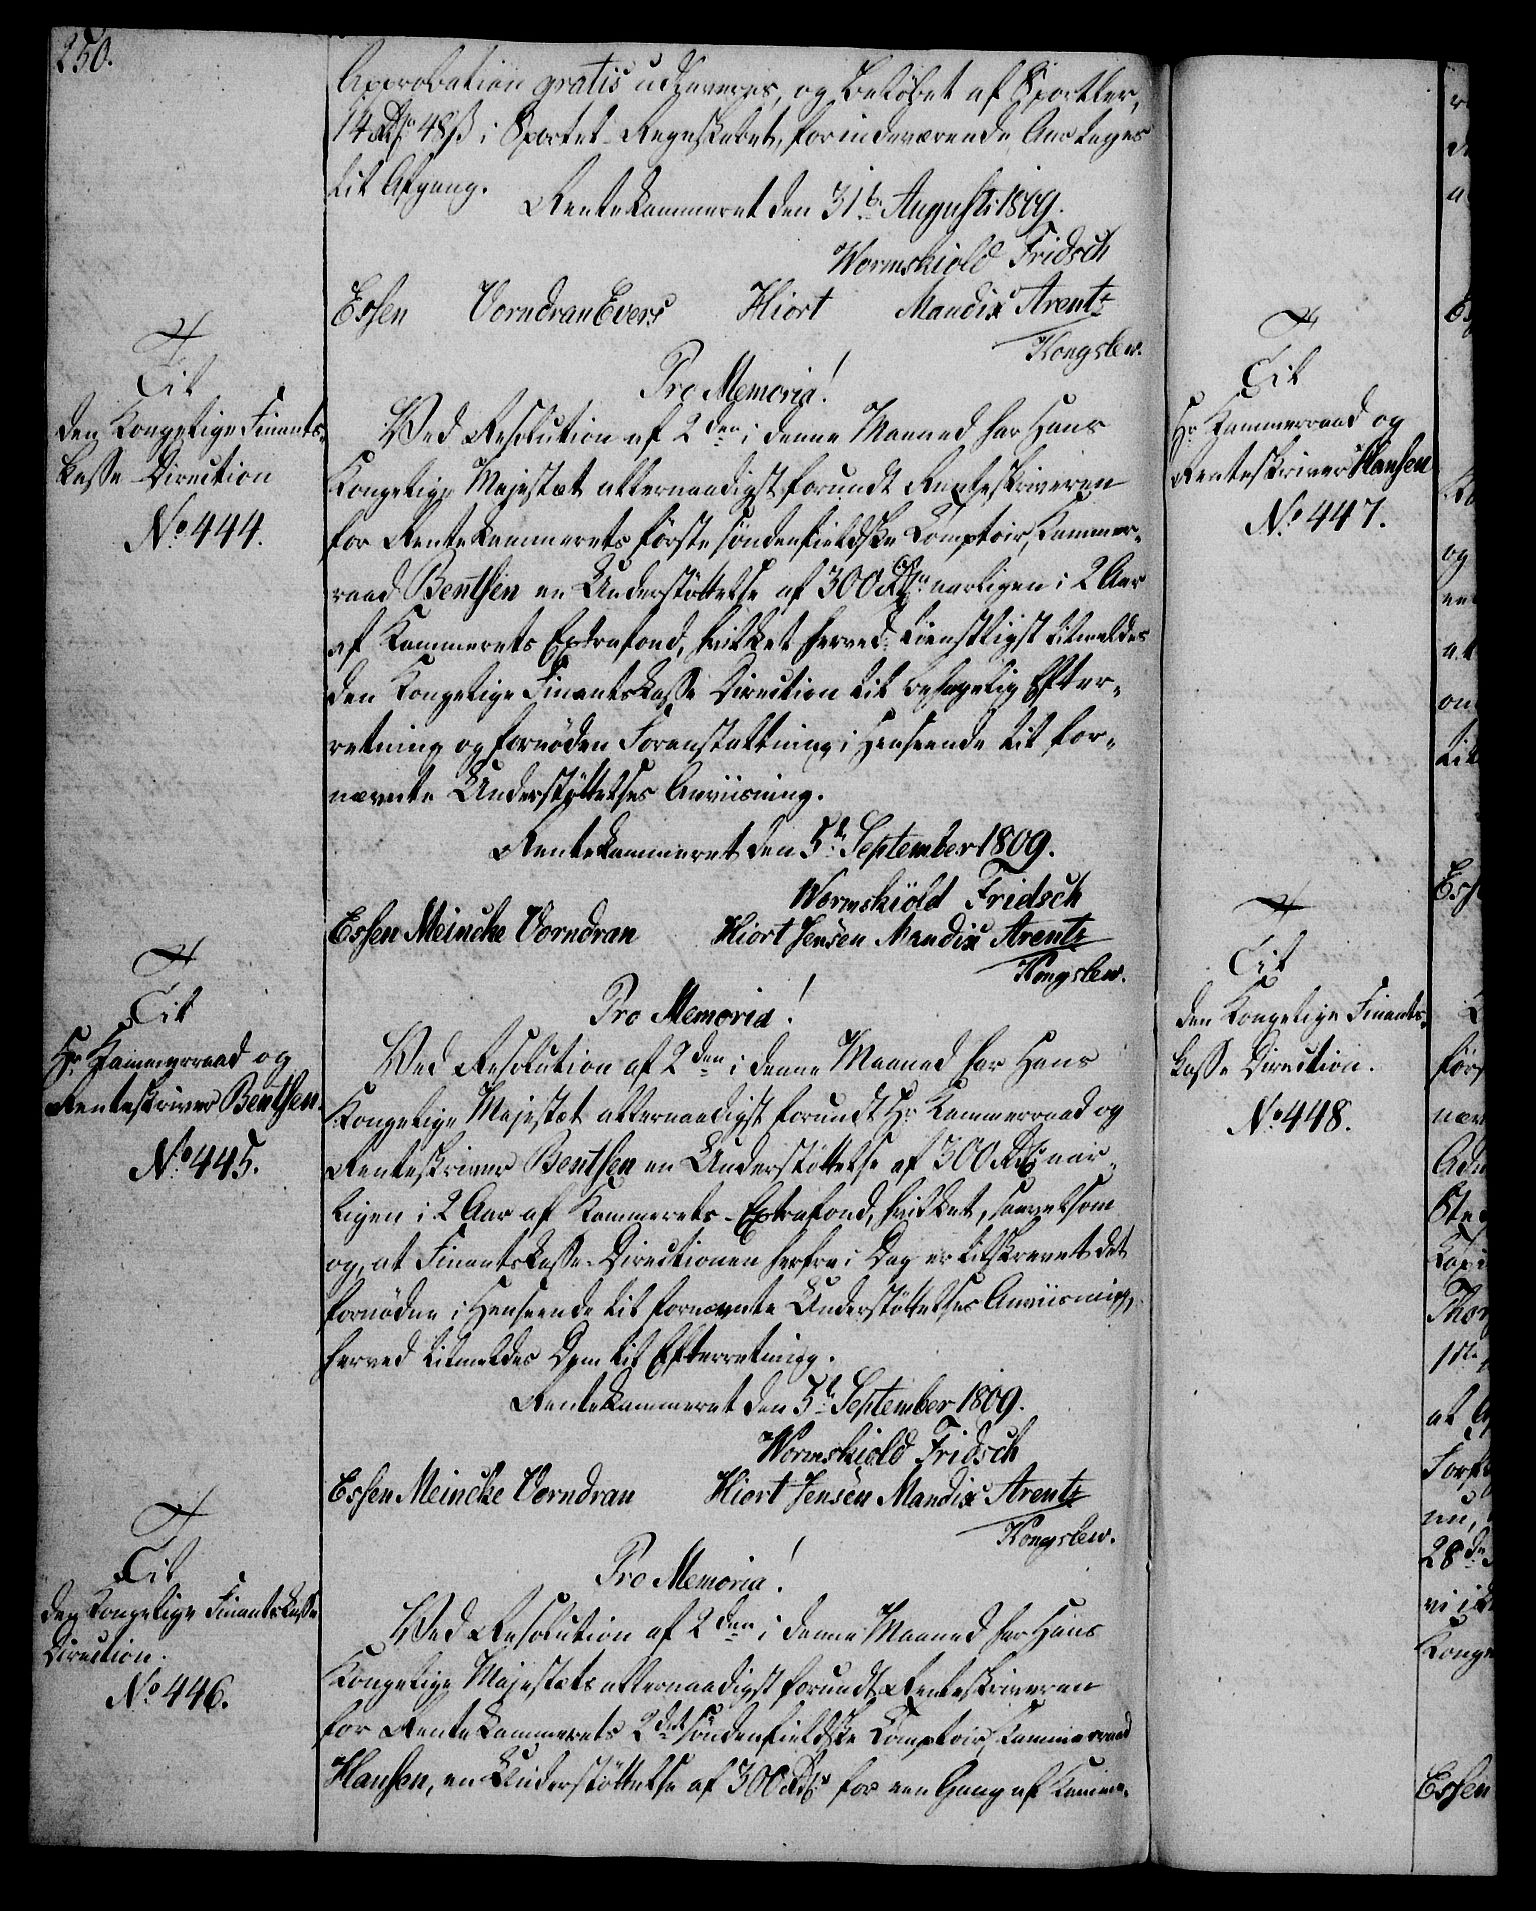 250.
Approbation gratis udfærges, og Beløbet af Sportler,
14 Rdr 48 ß i Sportel-Regnskabet, for indeværende Aar tages
til Afgang.
Rentekammeret den 31te Augusti 1809.
Wormskiold Fridsch
Essen Vorndran Evers Hiort Mandix Arentz
Kongslew.
Til
den Kongelige Finants-
kasse-Direction
No. 444.
Pro Memoria!
Ved Resolution af 2den i denne Maaned har Hans
Kongelige Majestæt allernaadigst forundt Renteskriveren
for Rentekammerets første søndenfieldske Comptoir, Kammer-
raad Bentsen en Understøttelse af 300 Rdr aarligen i 2 Aar
af Kammerets Extrafond, hvilket herved tienstligst tilmeldes
den Kongelige Finantskasse Direction til behagelig Efter-
retning og fornøden Foranstaltning i Henseende til for-
nævnte Understøttelses Anviisning.
Rentekammeret den 5te September 1809.
Wormskiöld Fridsch
Essen Meincke Vorndran Hiort Jensen Mandix Arentz
Kongslew.
Til
Hr. Kammerraad og
Renteskriver Bentsen.
No. 445.
Pro Memoria!
Ved Resolution af 2den i denne Maaned har Hans
Kongelige Majestæt allernaadigst forundt Hr. Kammerraad og
Renteskriver Bentsen en Understøttelse af 300 Rdr aar-
ligen i 2 Aar af Kammerets-Extrafond, hvilket, saavelsom
og, at Finantskasse-Directionen herfra i Dag er tilskrevet det
fornødne i Henseende til fornævnte Understøttelses Anviisning,
herved tilmeldes Dem til Efterretning.
Rentekammeret den 5te September 1809.
Wormskiold Fridsch
Essen Meincke Vorndran Hiort Jensen Mandix Arentz
Kongslew.
Til
den Kongelige Finantskasse
Direction.
No. 446.
Pro Memoria!
Ved Resolution af 2den i denne Maaned har Hans
Kongelige Majestæts allernaadigst forundt Renteskriveren
for Rentekammerets 2det søndenfieldske Comptoir, Kammerraad
Hansen, en Understøttelse af 300 Rdr for een Gang af Kamme-
Til
Hr. Kammerraad og
Renteskriver Hansen
No. 447.
Til
den Kongelige Finants-
kasse Direction.
No. 448.